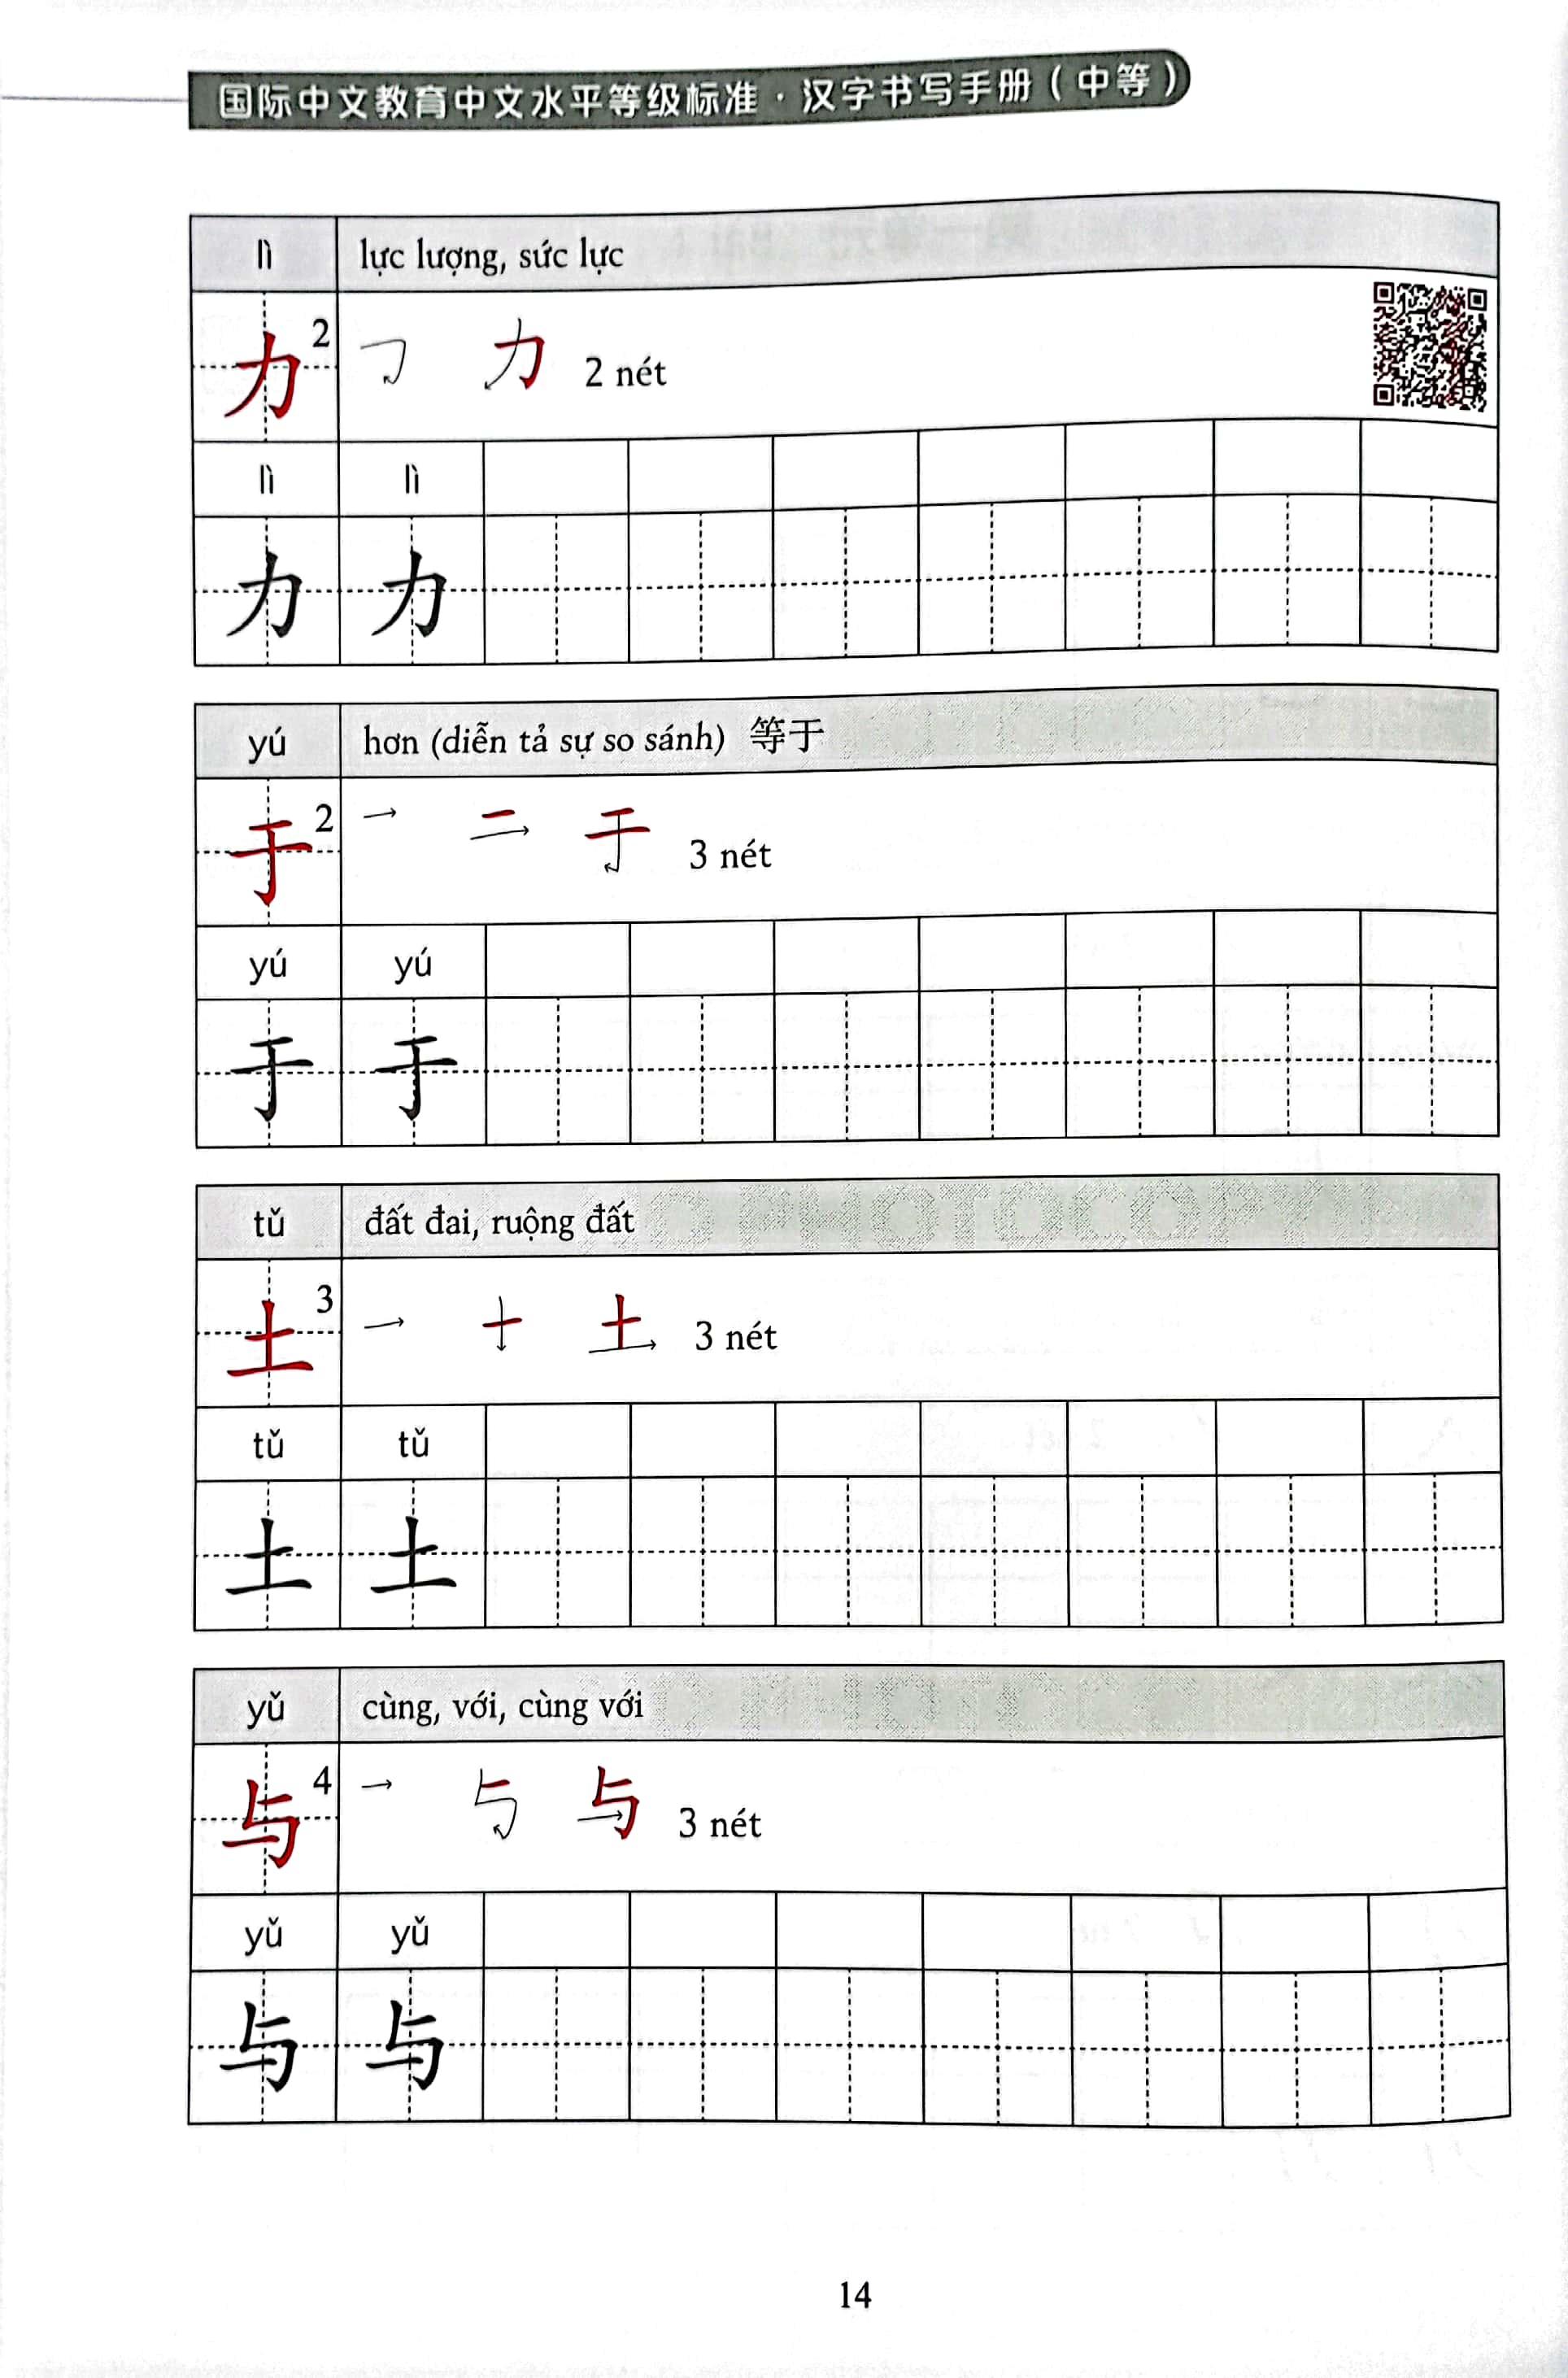 国际中文教育中文水平等级标准·汉字书写手册（中等）
lì lực lượng, sức lực
力 2 2 nét
lì lì
力 力
yú hơn (diễn tả sự so sánh) 等于
于 2 3 nét
yú yú
于 于
tǔ đất đai, ruộng đất PHOTOCOPY
土 3 3 nét
tǔ tǔ
土 土
yǔ cùng, với, cùng với
与 4 3 nét
yǔ yǔ
与 与
14